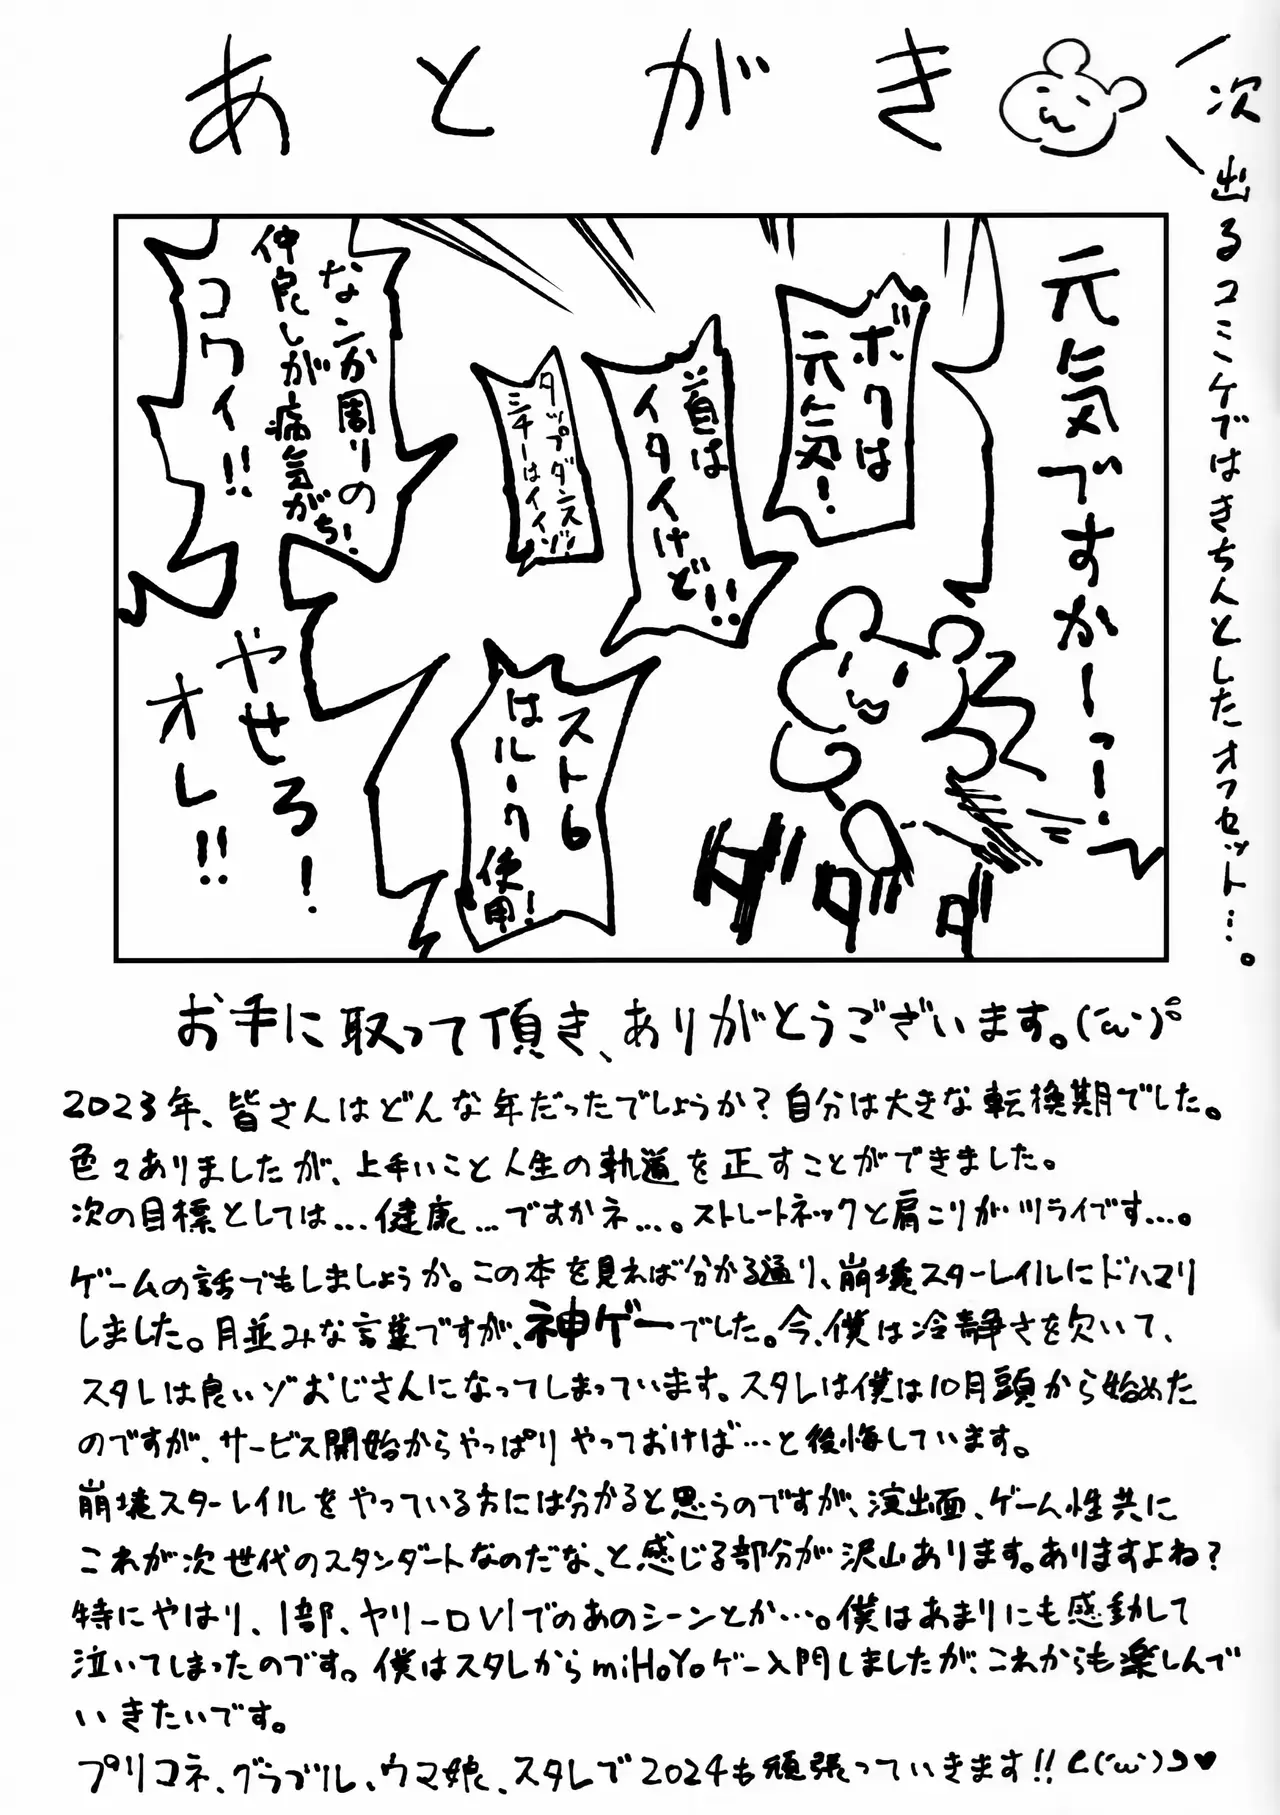 あとがき
次出るコミケではきちんとしたオフセット…。
元気ですかーっ！
ボクは
元気！
首は
イタイけど!!
タップダンス
シチーはイイゾ！
なンか周りの
仲良しが病気がち！
コワイ!!
スト6
はルーク
使用！
やせろ！
オレ!!
ダダダ
お手に取って頂き、ありがとうございます。(´ω`)
2023年、皆さんはどんな年だったでしょうか？自分は大きな転換期でした。
色々ありましたが、上手いこと人生の軌道を正すことができました。
次の目標としては…健康…ですかネ…。ストレートネックと肩こりがツライです…。
ゲームの話でもしましょうか。この本を見れば分かる通り、崩壊スターレイルにドハマリ
しました。月並みな言葉ですが、神ゲーでした。今、僕は冷静さを欠いて、
スタレは良いゾおじさんになってしまっています。スタレは僕は10月頭から始めた
のですが、サービス開始からやっぱりやっておけば…と後悔しています。
崩壊スターレイルをやっている方には分かると思うのですが、演出面、ゲーム性共に
これが次世代のスタンダートなのだな、と感じる部分が沢山あります。ありますよね？
特にやはり、1部、ヤリーロVIでのあのシーンとか…。僕はあまりにも感動して
泣いてしまったのです。僕はスタレからmiHoYoゲー入門しましたが、これからも楽しんで
いきたいです。
プリコネ、グラブル、ウマ娘、スタレで2024も頑張っていきます!!⊂(´ω`)⊃♥